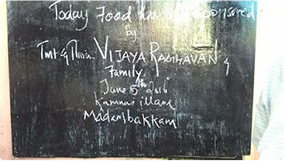 Today Food has been sponsored
by
Tmt & Thiru. VIJAYA RAGHAVAN &
Family.
June 15th 2016
Kamnai illam
Madambakkam